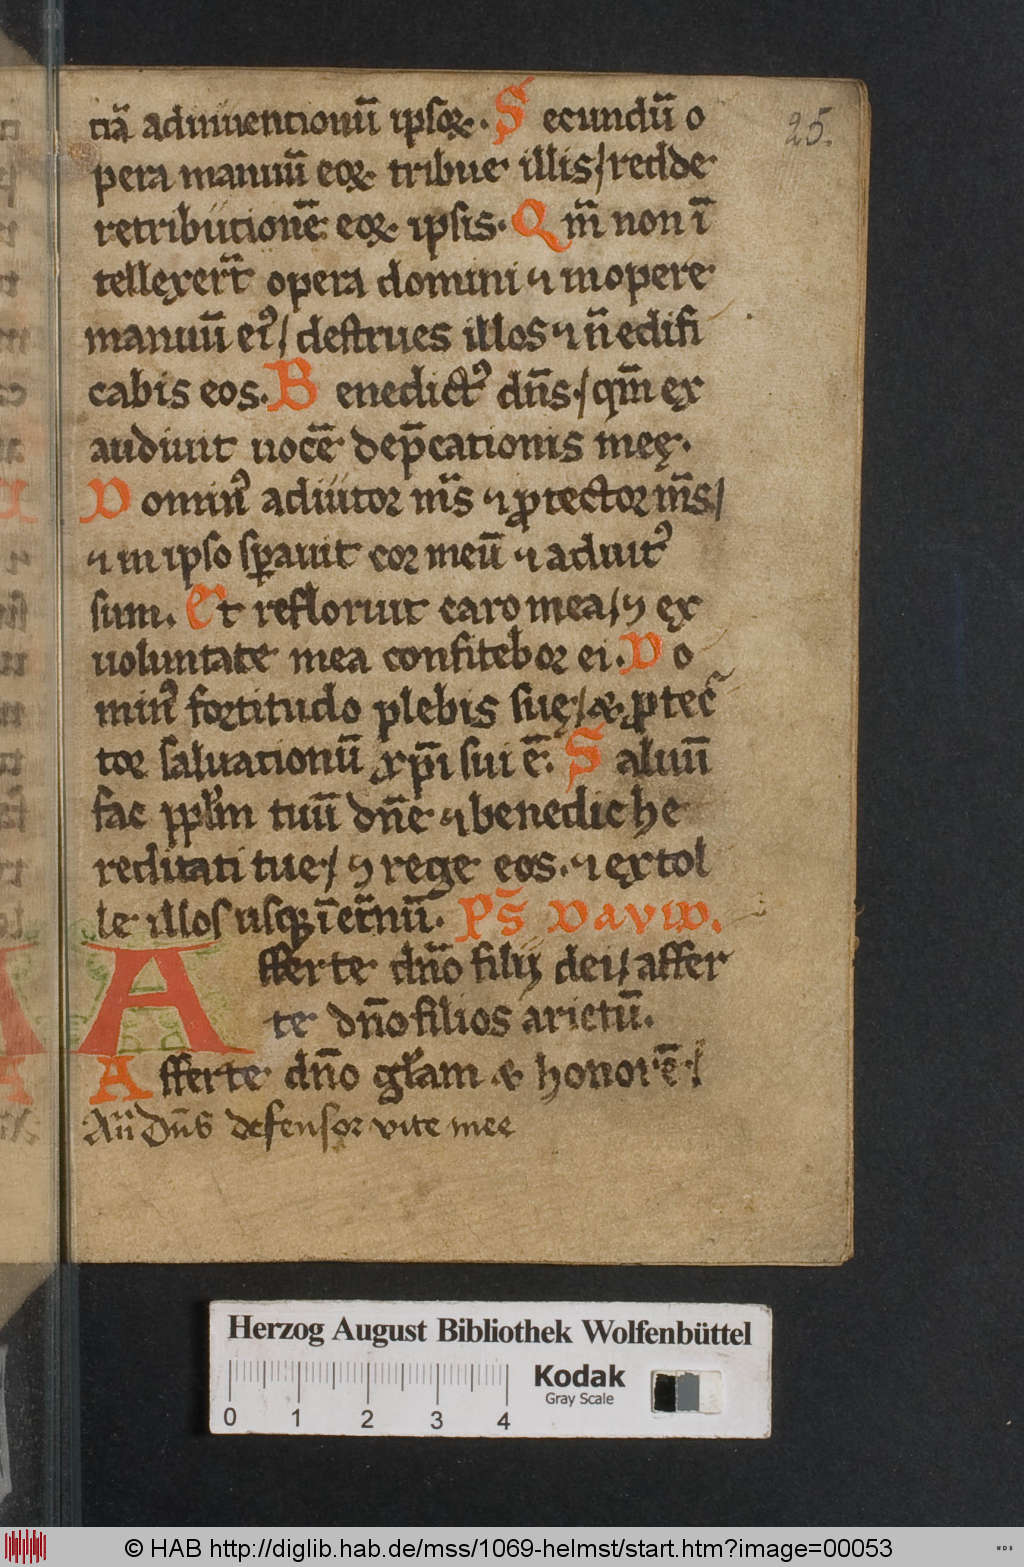 tiā adinuentionū ipsoꝝ. Secundū o
25.
pera manuū eoꝝ tribue illis / redde
retributionē eoꝝ ipsis. Qm̄ non ī
tellexer̄t opera domini ⁊ in opere
manuū eiꝰ / destrues illos ⁊ n̄ edifi
cabis eos. Benedictꝰ dn̄s. / qm̄ ex
audiuit uocē dep̄cationis meę.
Dominꝰ adiutor m̄s ⁊ ꝓtector m̄s /
⁊ in ipso sꝑauit cor meū ⁊ adiutꝰ
sum. Et refloruit caro mea / ⁊ ex
uoluntate mea confitebor ei. Do
minꝰ fortitudo plebis suę / & ꝓtec
tor saluationū xp̄i sui ē. Saluū
fac pplm̄ tuū dn̄e ⁊ benedic he
reditati tue / ⁊ rege eos. ⁊ extol
le illos usqꝫ ī et̄nū. Ps̄ DAVID.
Afferte dn̄o filij dei / affer
te dn̄o filios arietū.
Afferte dn̄o glam̄ & honorē /
An̄ Dn̄s defensor vite mee
Herzog August Bibliothek Wolfenbüttel
Kodak
Gray Scale
0 1 2 3 4
© HAB http://diglib.hab.de/mss/1069-helmst/start.htm?image=00053